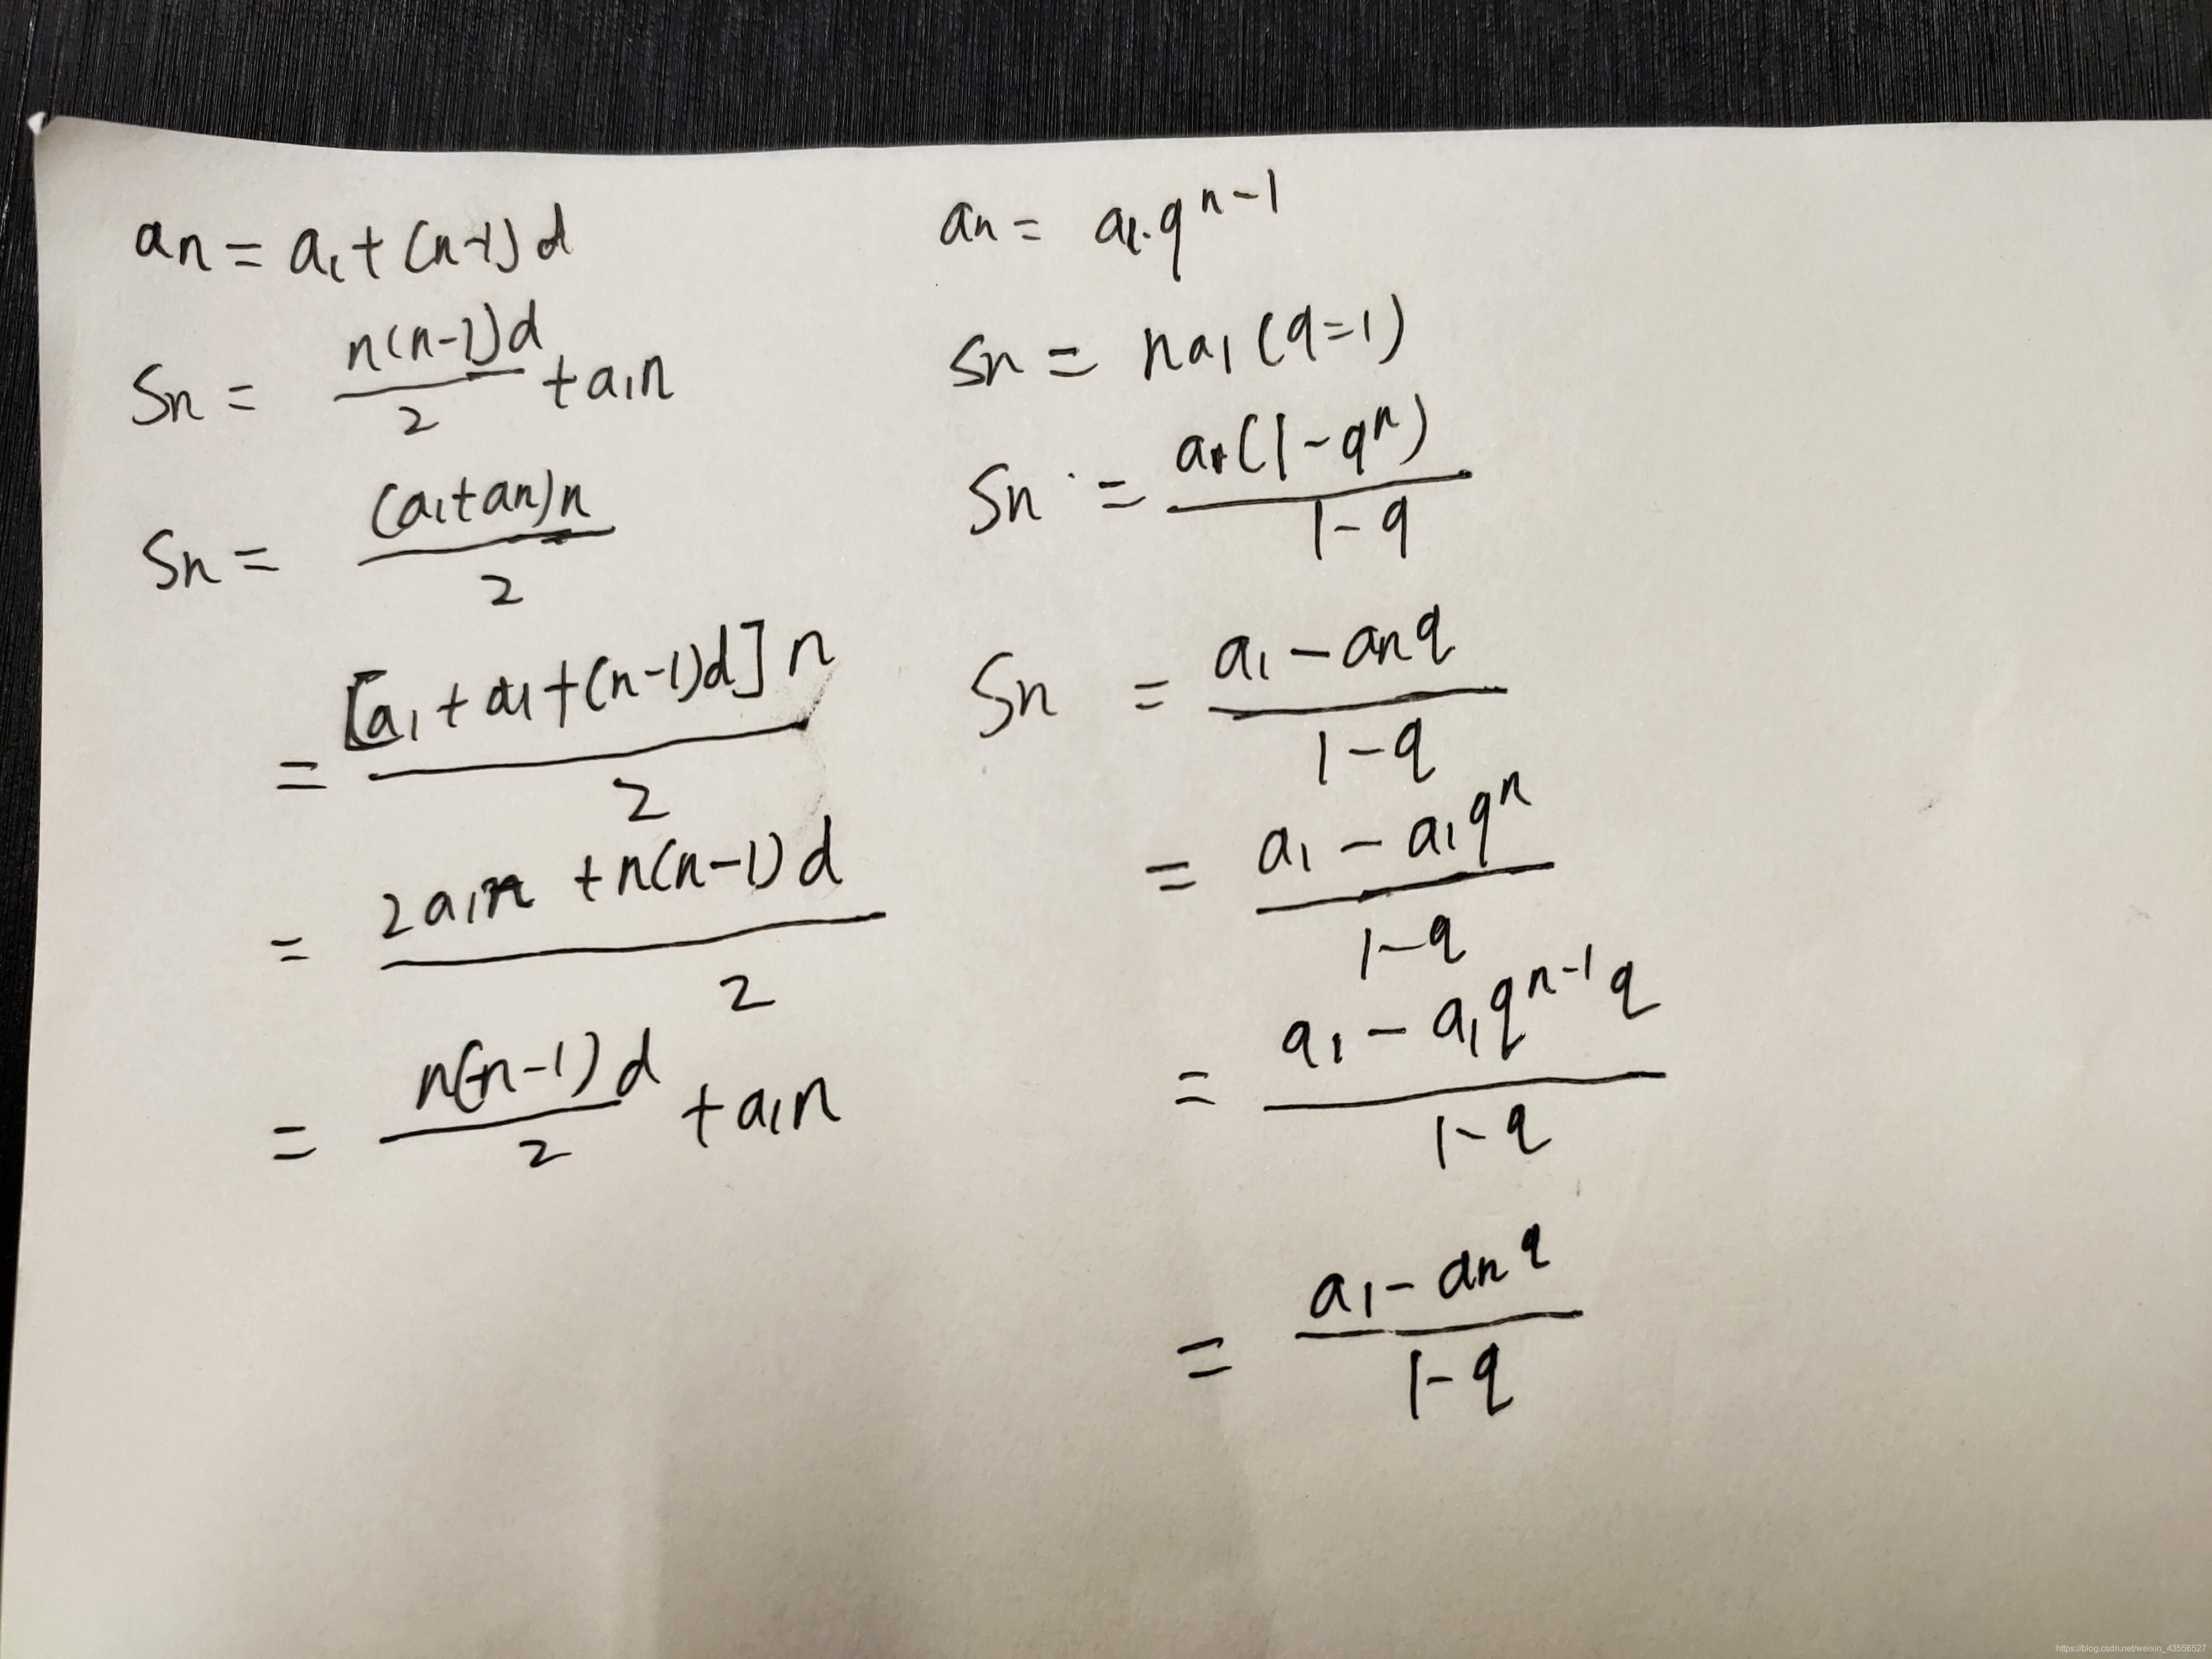 an = a₁ + (n-1)d
Sn = \frac{n(n-1)d}{2} + a₁n
Sn = \frac{(a₁+an)n}{2}
= \frac{[a₁ + a₁ + (n-1)d]n}{2}
= \frac{2a₁n + n(n-1)d}{2}
= \frac{n(n-1)d}{2} + a₁n
an = a₁·q^{n-1}
Sn = na₁ (q=1)
Sn = \frac{a₁(1-q^n)}{1-q}
Sn = \frac{a₁ - anq}{1-q}
= \frac{a₁ - a₁q^n}{1-q}
= \frac{a₁ - a₁q^{n-1}q}{1-q}
= \frac{a₁ - anq}{1-q}
https://blog.csdn.net/weixin_43556527